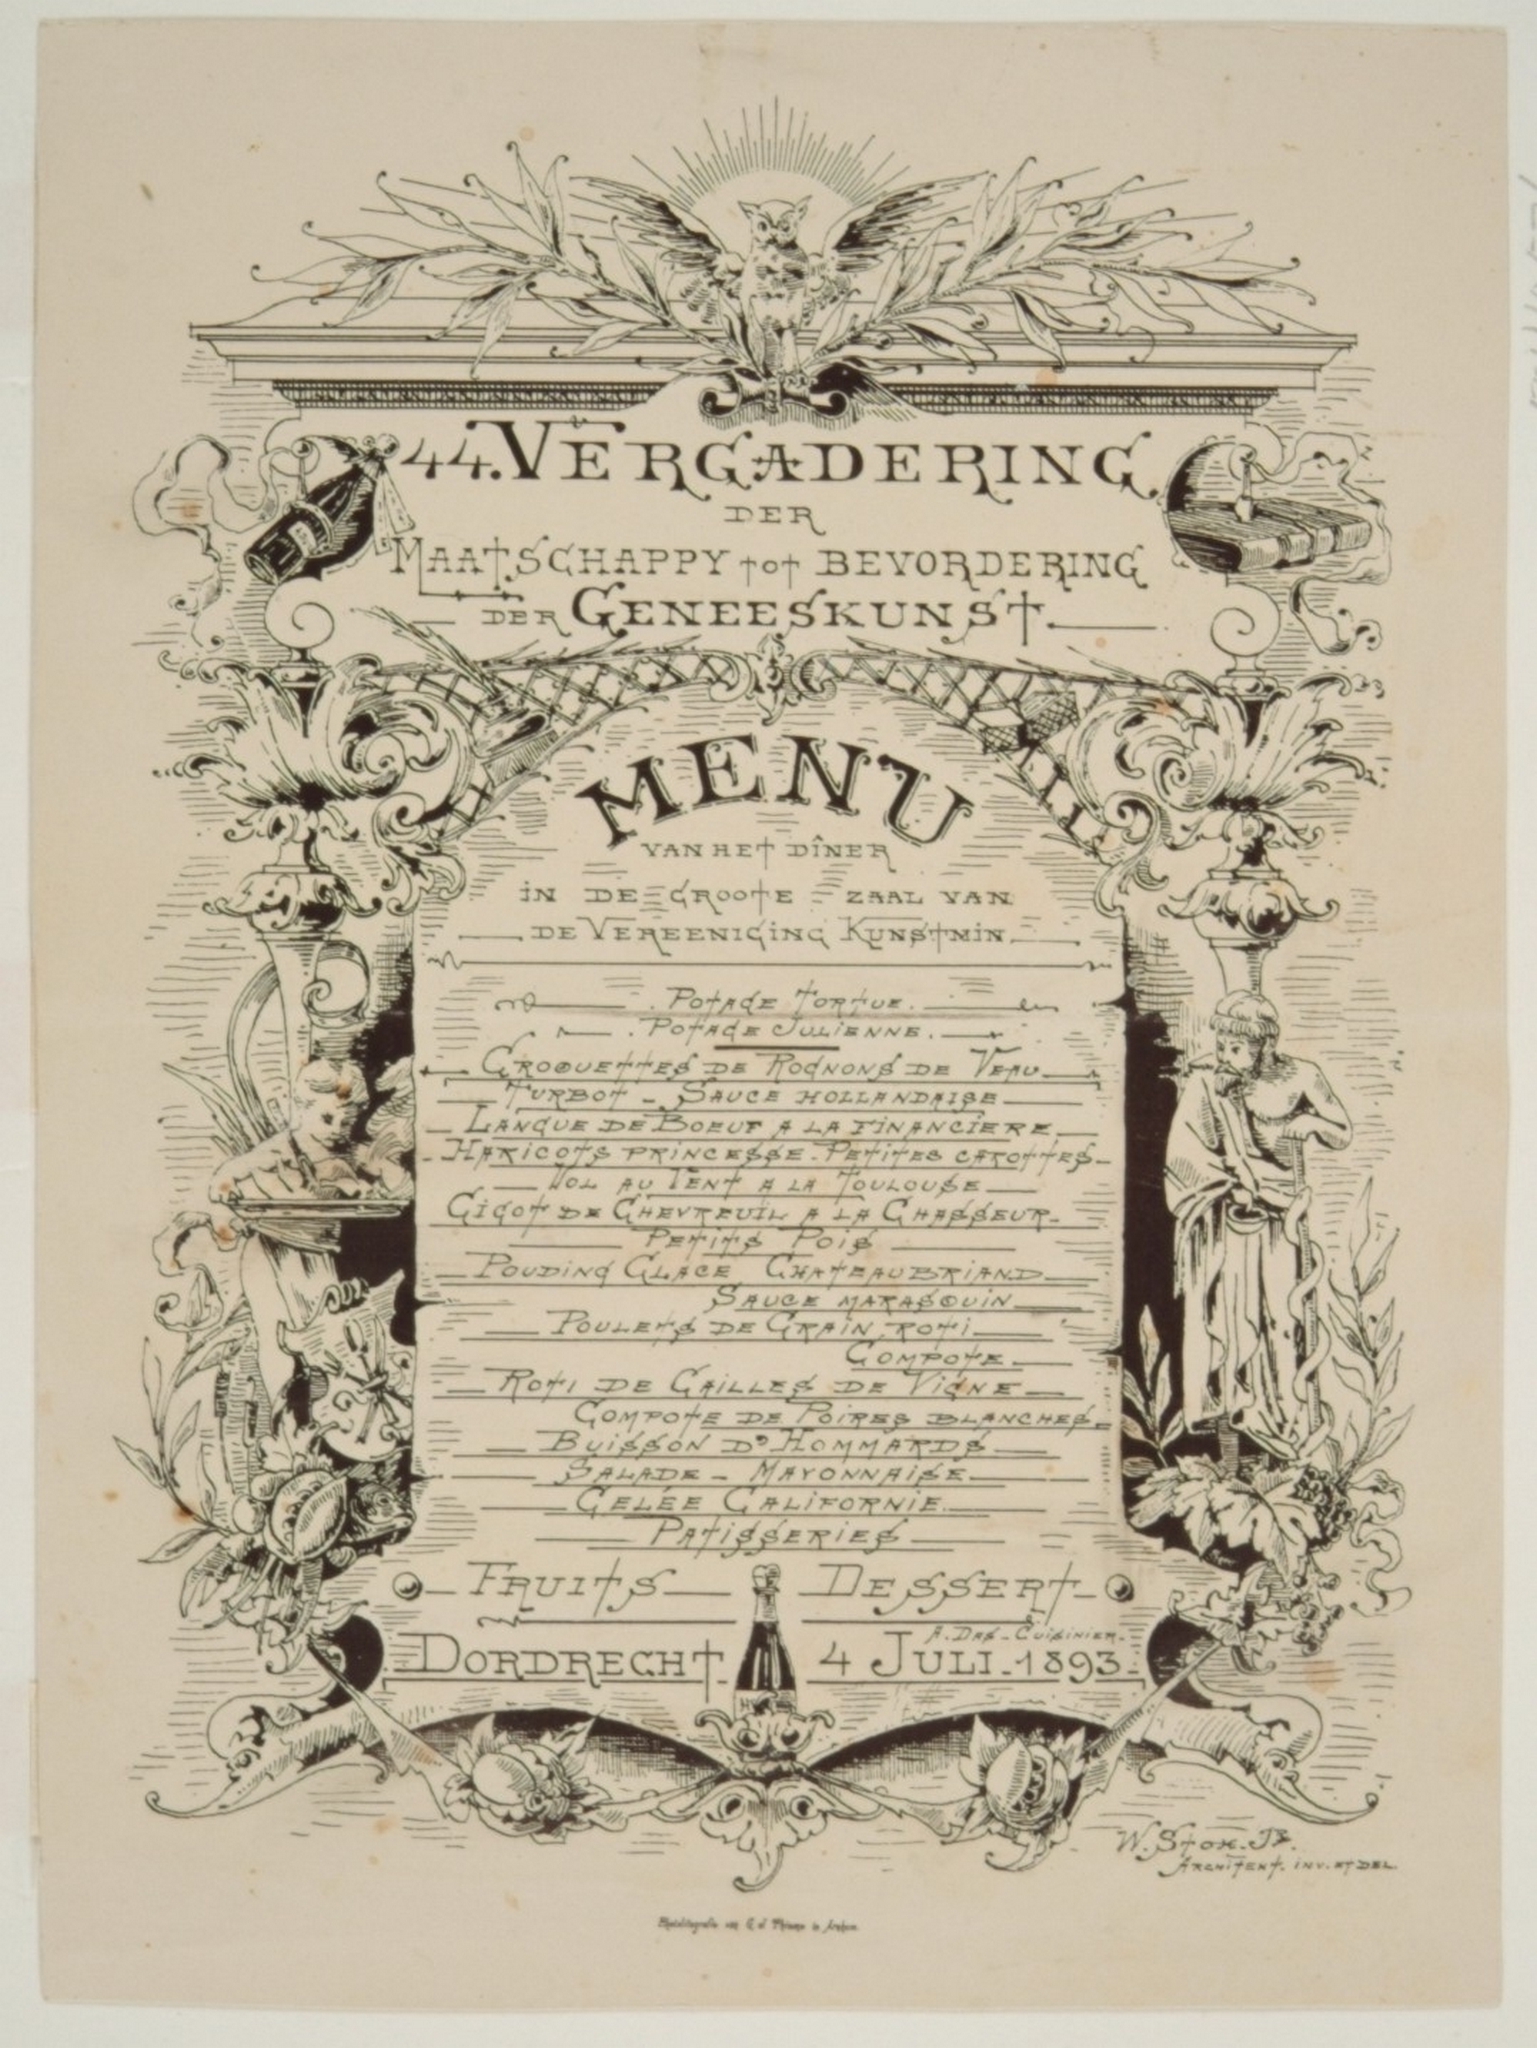 44. VERGADERING
DER
MAATSCHAPPY TOT BEVORDERING
DER GENEESKUNST
MENU
VAN HET DÎNER
IN DE GROOTE ZAAL VAN
DE VEREENIGING KUNSTMIN
POTAGE TORTUE.
POTAGE JULIENNE.
CROQUETTES DE ROGNONS DE VEAU
TURBOT - SAUCE HOLLANDAISE
LANGUE DE BOEUF A LA FINANCIÈRE
HARICOTS PRINCESSE - PETITES CAROTTES
VOL AU VENT A LA TOULOUSE
GIGOT DE CHEVREUIL A LA CHASSEUR
PETITS POIS
POUDING GLACE CHATEAUBRIAND
SAUCE MARASQUIN
POULETS DE GRAIN, ROTI
COMPOTE
ROTI DE CAILLES DE VIGNE
COMPOTE DE POIRES BLANCHES
BUISSON D'HOMMARDS
SALADE - MAYONNAISE
GELÉE CALIFORNIE
PATISSERIES
FRUITS DESSERT
A. DAS - CUISINIER -
DORDRECHT 4 JULI - 1893
W. STOK. JZ.
ARCHITEKT. INV. ET DEL.